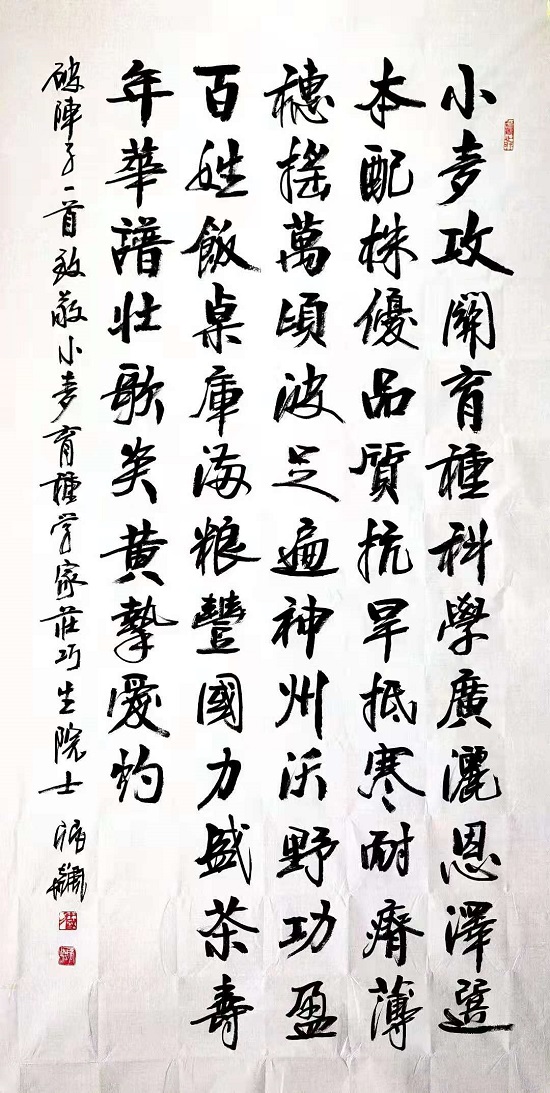 小麦攻關育種科學廣灑恩澤選
本配株優品質抗旱抵寒耐瘠薄
穗摇萬頃波芝遍神州沃野功盈
百姓飯桌庫海粮豐國力盛茶壽
年華譜壮歌炎黄摯愛灼
破陣子一首致敬小麦育種学家莊巧生院士